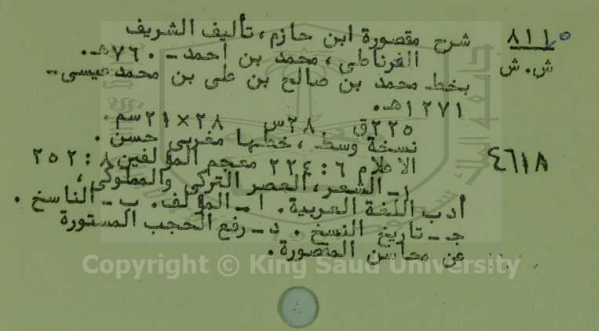 ٨١١ شرح مقصورة ابن حازم، تأليف الشريف
ش.ش الغرناطي، محمد بن أحمد - ٧٦٠هـ.
بخط محمد بن صالح بن طي بن محمد عيسى -
١٢٧١هـ.
٢٢٥ق ٢٨س ٢٨×٢١سم.
نسخة وسط، خطها مغربي حسن.
٤٦١٨ الاعلام ٦: ٢٢٤ معجم المؤلفين ٨: ٢٥٢
١- الشعر، العصر التركي والمملوكي،
أدب اللغة العربية. ا- المؤلف. ب- الناسخ.
جـ- تاريخ النسخ. د- رفع الحجب المستورة
عن محاسن المقصورة.
Copyright © King Saud University